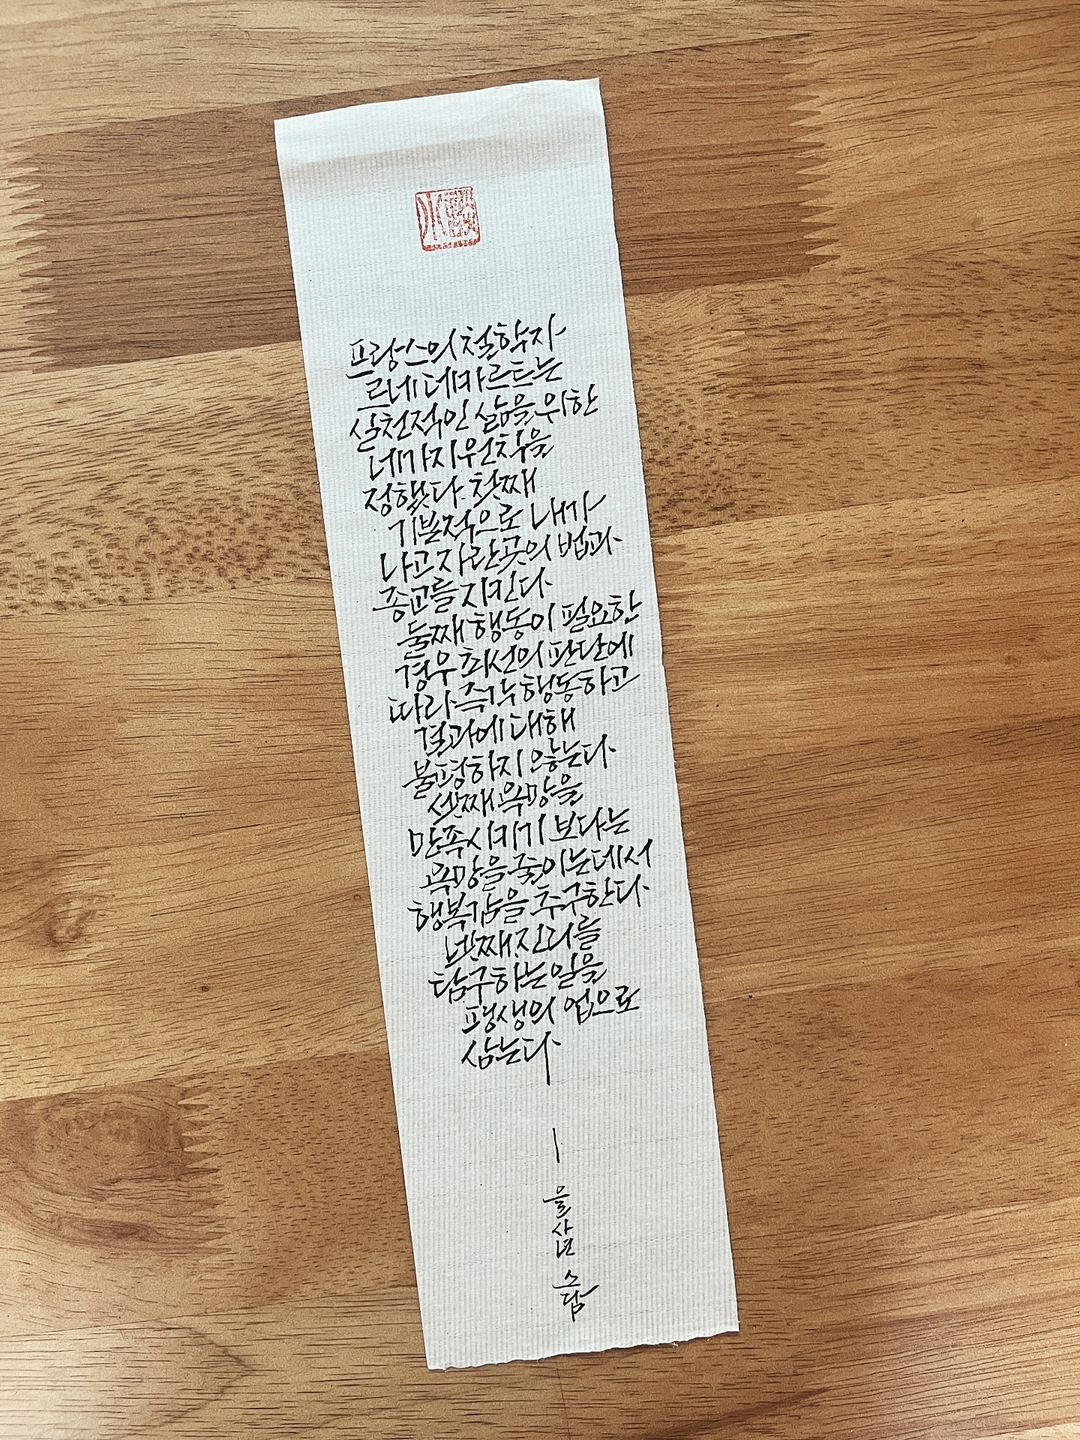 프랑스의 철학자
르네 데카르트는
실천적인 삶을 위한
네가지 원칙을
정했다. 첫째
기본적으로 내가
나고 자란 곳의 법과
종교를 지킨다
둘째 행동이 필요한
경우 최선의 판단에
따라 즉각 행동하고
결과에 대해
불평하지 않는다
셋째 욕망을
만족시키기 보다는
욕망을 줄이는데서
행복감을 추구한다
넷째 진리를
탐구하는 일을
평생의 업으로
삼는다
을
사
년
소
담